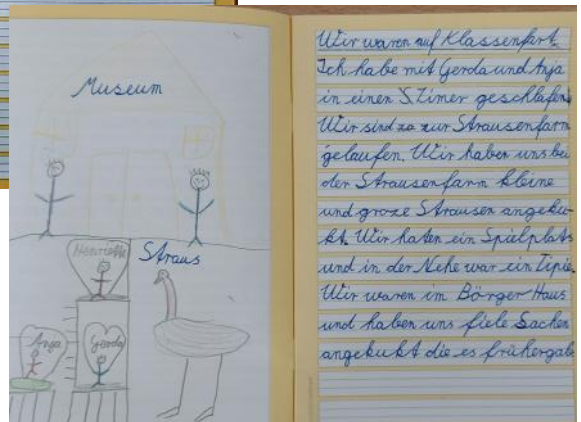 Museum
Straus
Henriette
Anja
Gerda
Wir waren auf Klassenfart.
Ich habe mit Gerda und Anja
in einen Zimer geschlafen.
Wir sind zur Strausenfarm
gelaufen. Wir haben uns bei
der Strausenfarm kleine
und groze Strausen angeku-
kt. Wir haten ein Spielplats
und in der Nehe war ein Tipie.
Wir waren im Börger Haus
und haben uns fiele Sachen
angekukt die es früher gab